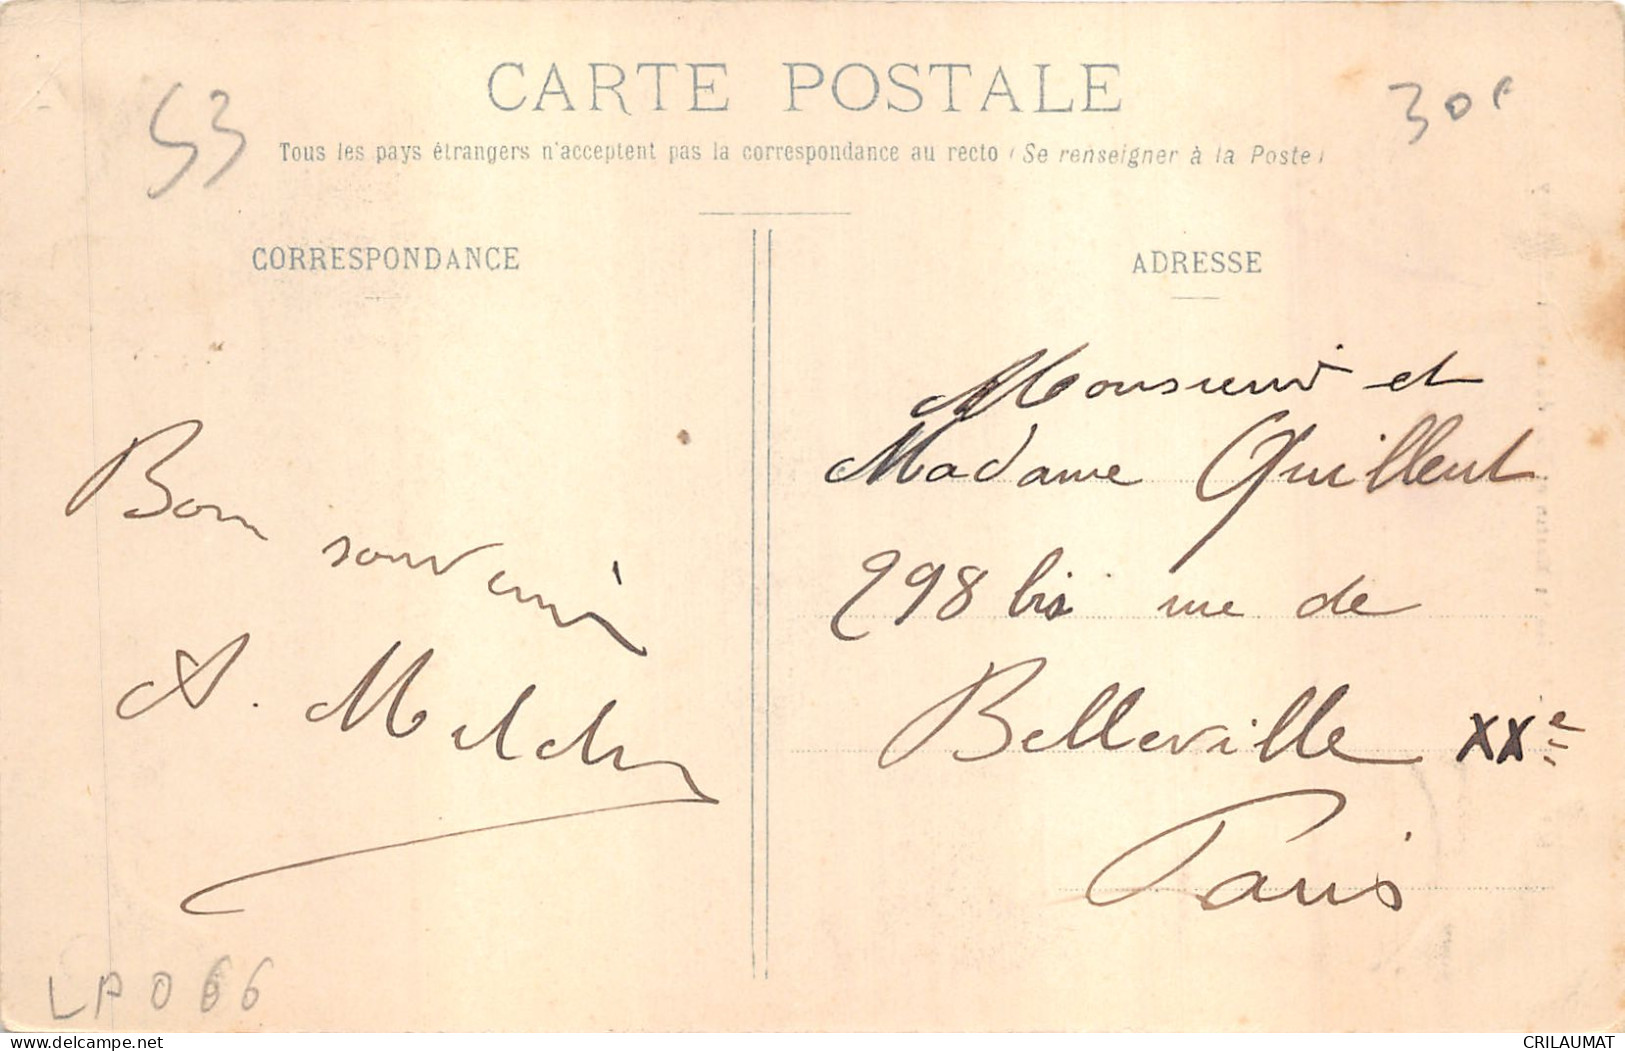 CARTE POSTALE
53
30F
Tous les pays étrangers n'acceptent pas la correspondance au recto (Se renseigner à la Poste)
CORRESPONDANCE
Bon souvenir
A.
LP066
ADRESSE
Monsieur et
Madame Quillent
298 bis rue de
Belleville XXe
Paris
www.delcampe.net
CRILAUMAT